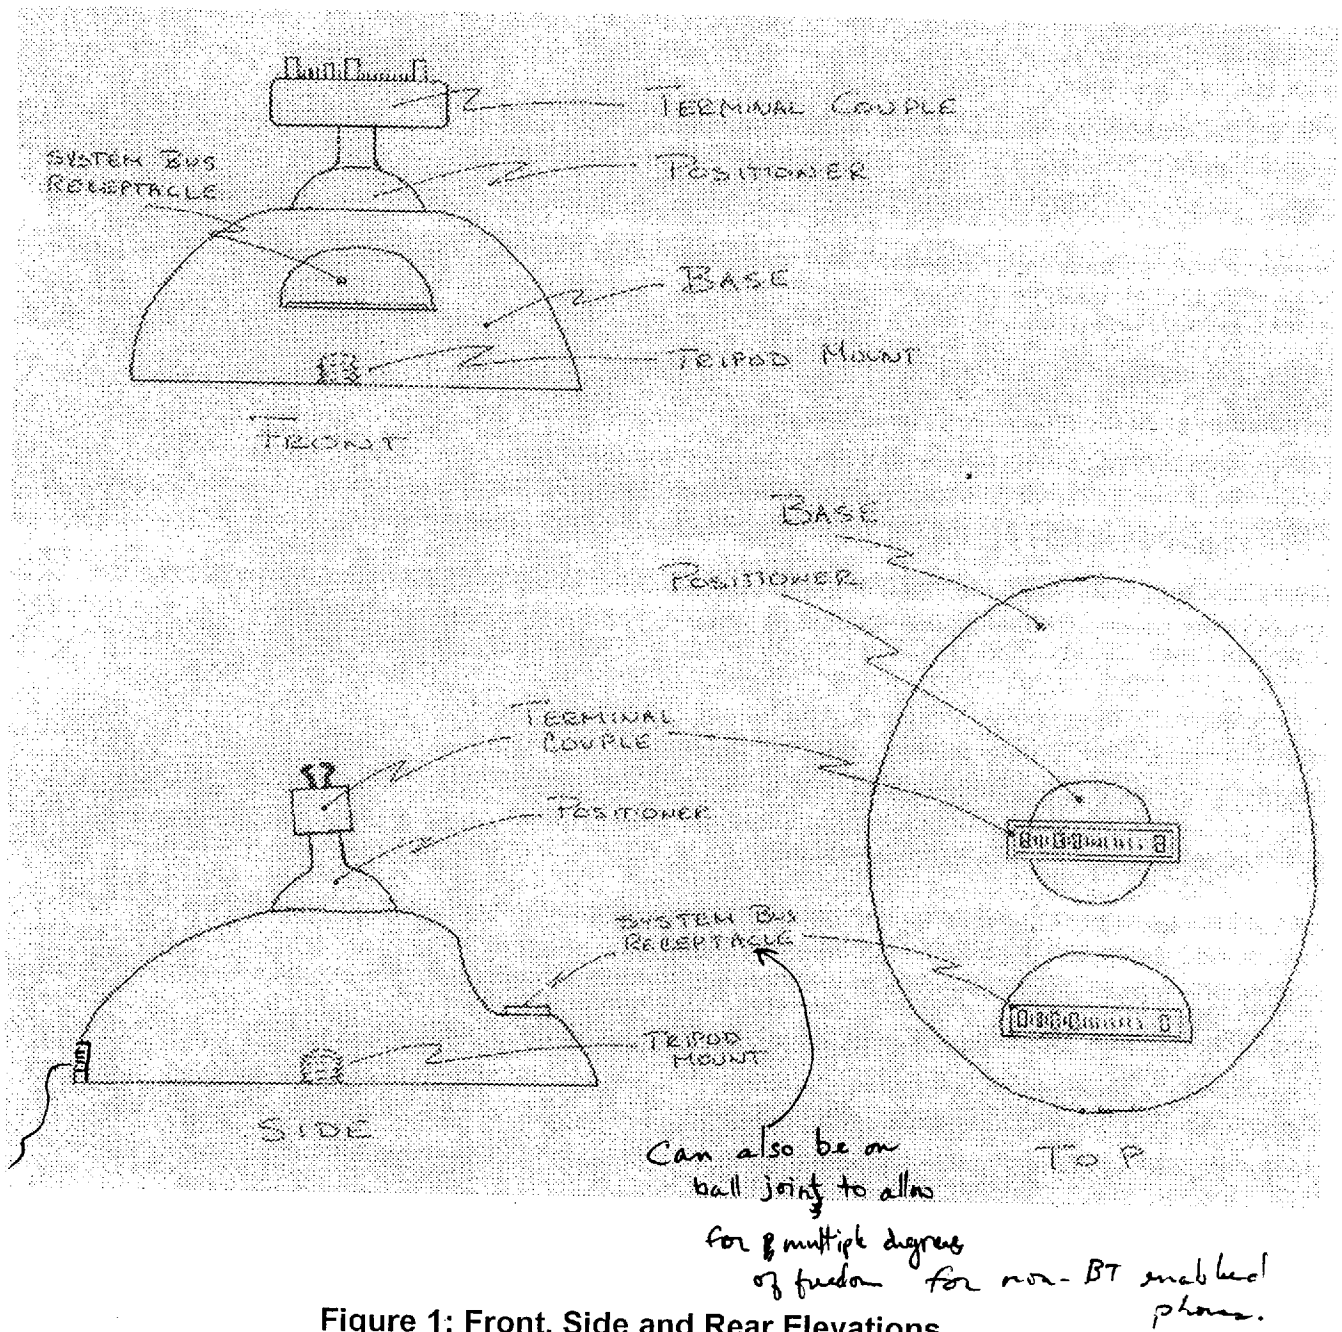 TERMINAL COUPLE
POSITIONER
SYSTEM BUS
RECEPTACLE
BASE
TRIPOD MOUNT
FRONT
BASE
POSITIONER
TERMINAL
COUPLE
POSITIONER
SYSTEM BUS
RECEPTACLE
TRIPOD
MOUNT
SIDE
TOP
Can also be on
ball joint to allow
for multiple degrees
of freedom for non-BT enabled
phones.
Figure 1: Front, Side and Rear Elevations